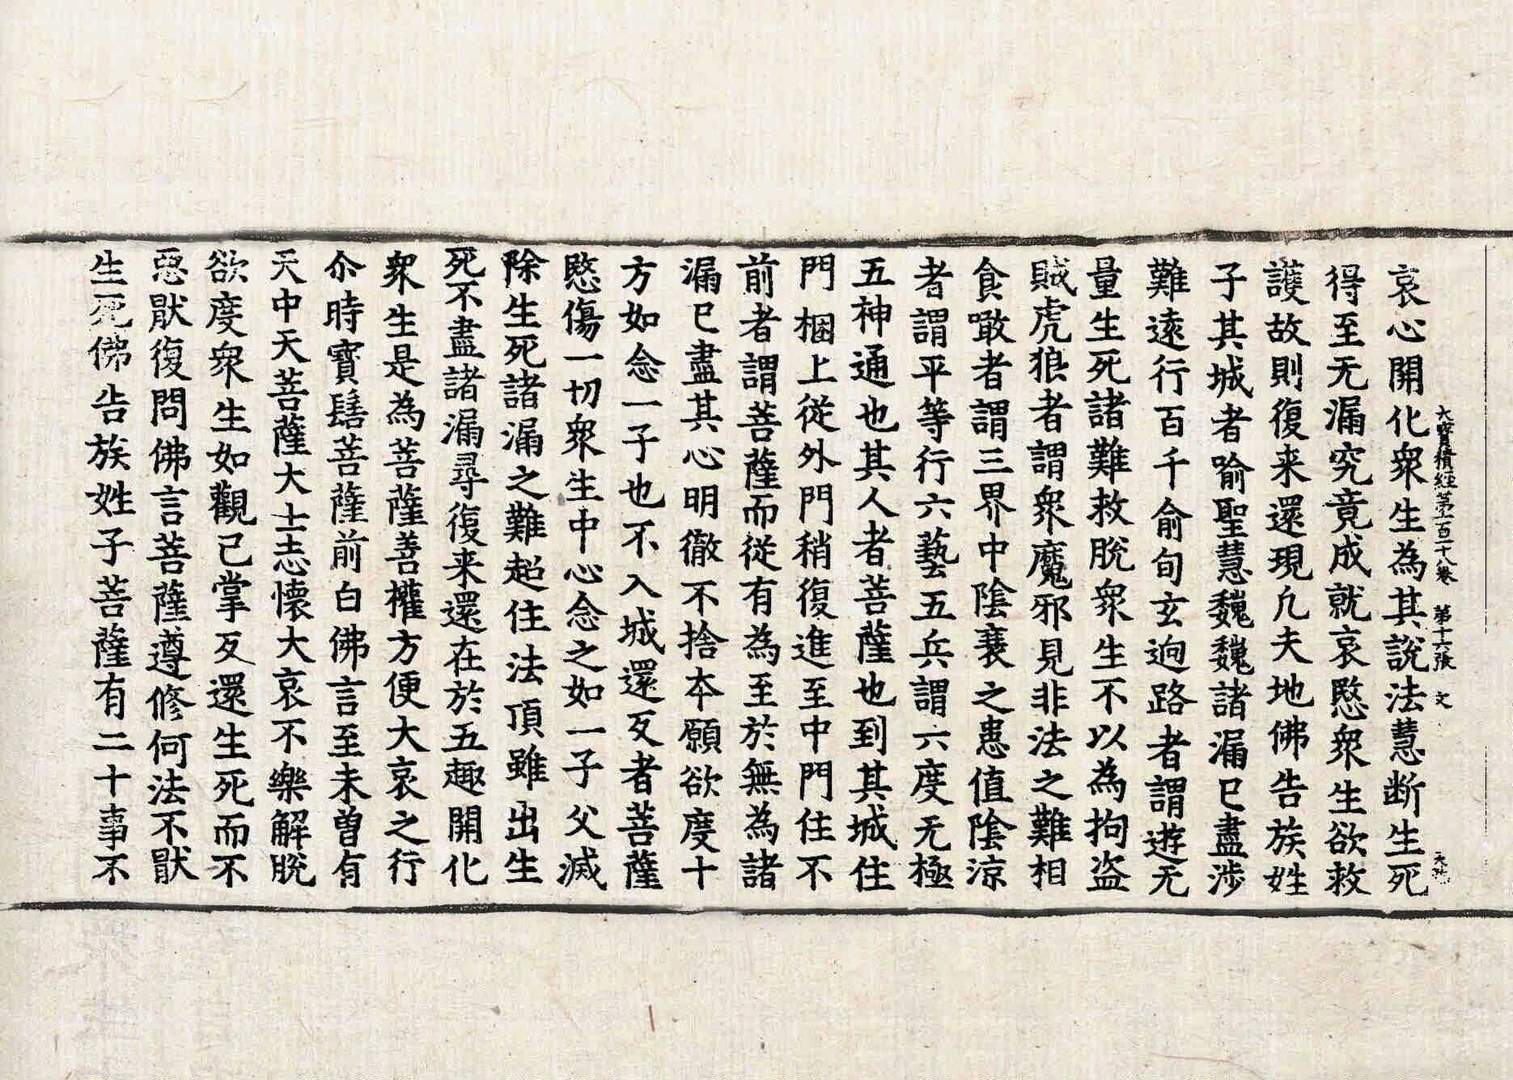 大寶積經第一百十八卷　第十六張　文
哀心開化衆生為其說法慧断生死
得至无漏究竟成就哀愍衆生欲救
護故則復来還現凢夫地佛告族姓
子其城者喻聖慧巍巍諸漏已盡渉
難遠行百千俞旬玄逈路者謂遊无
量生死諸難救脫衆生不以為拘盗
賊虎狼者謂衆魔邪見非法之難相
食噉者謂三界中陰蓑之患值陰凉
者謂平等行六藝五兵謂六度无極
五神通也其人者菩薩也到其城住
門梱上從外門稍復進至中門住不
前者謂菩薩而從有為至於無為諸
漏已盡其心明徹不捨夲願欲度十
方如念一子也不入城還㞋者菩薩
愍傷一切衆生中心念之如一子父滅
除生死諸漏之難超住法頂雖出生
死不盡諸漏尋復来還在於五趣開化
衆生是為菩薩善權方便大哀之行
尒時寶髻菩薩前白佛言至未曽有
天中天菩薩大士志懷大哀不樂解脫
欲度衆生如觀已掌㞋還生死而不
惡猒復問佛言菩薩遵修何法不猒
生死佛告族姓子菩薩有二十事不